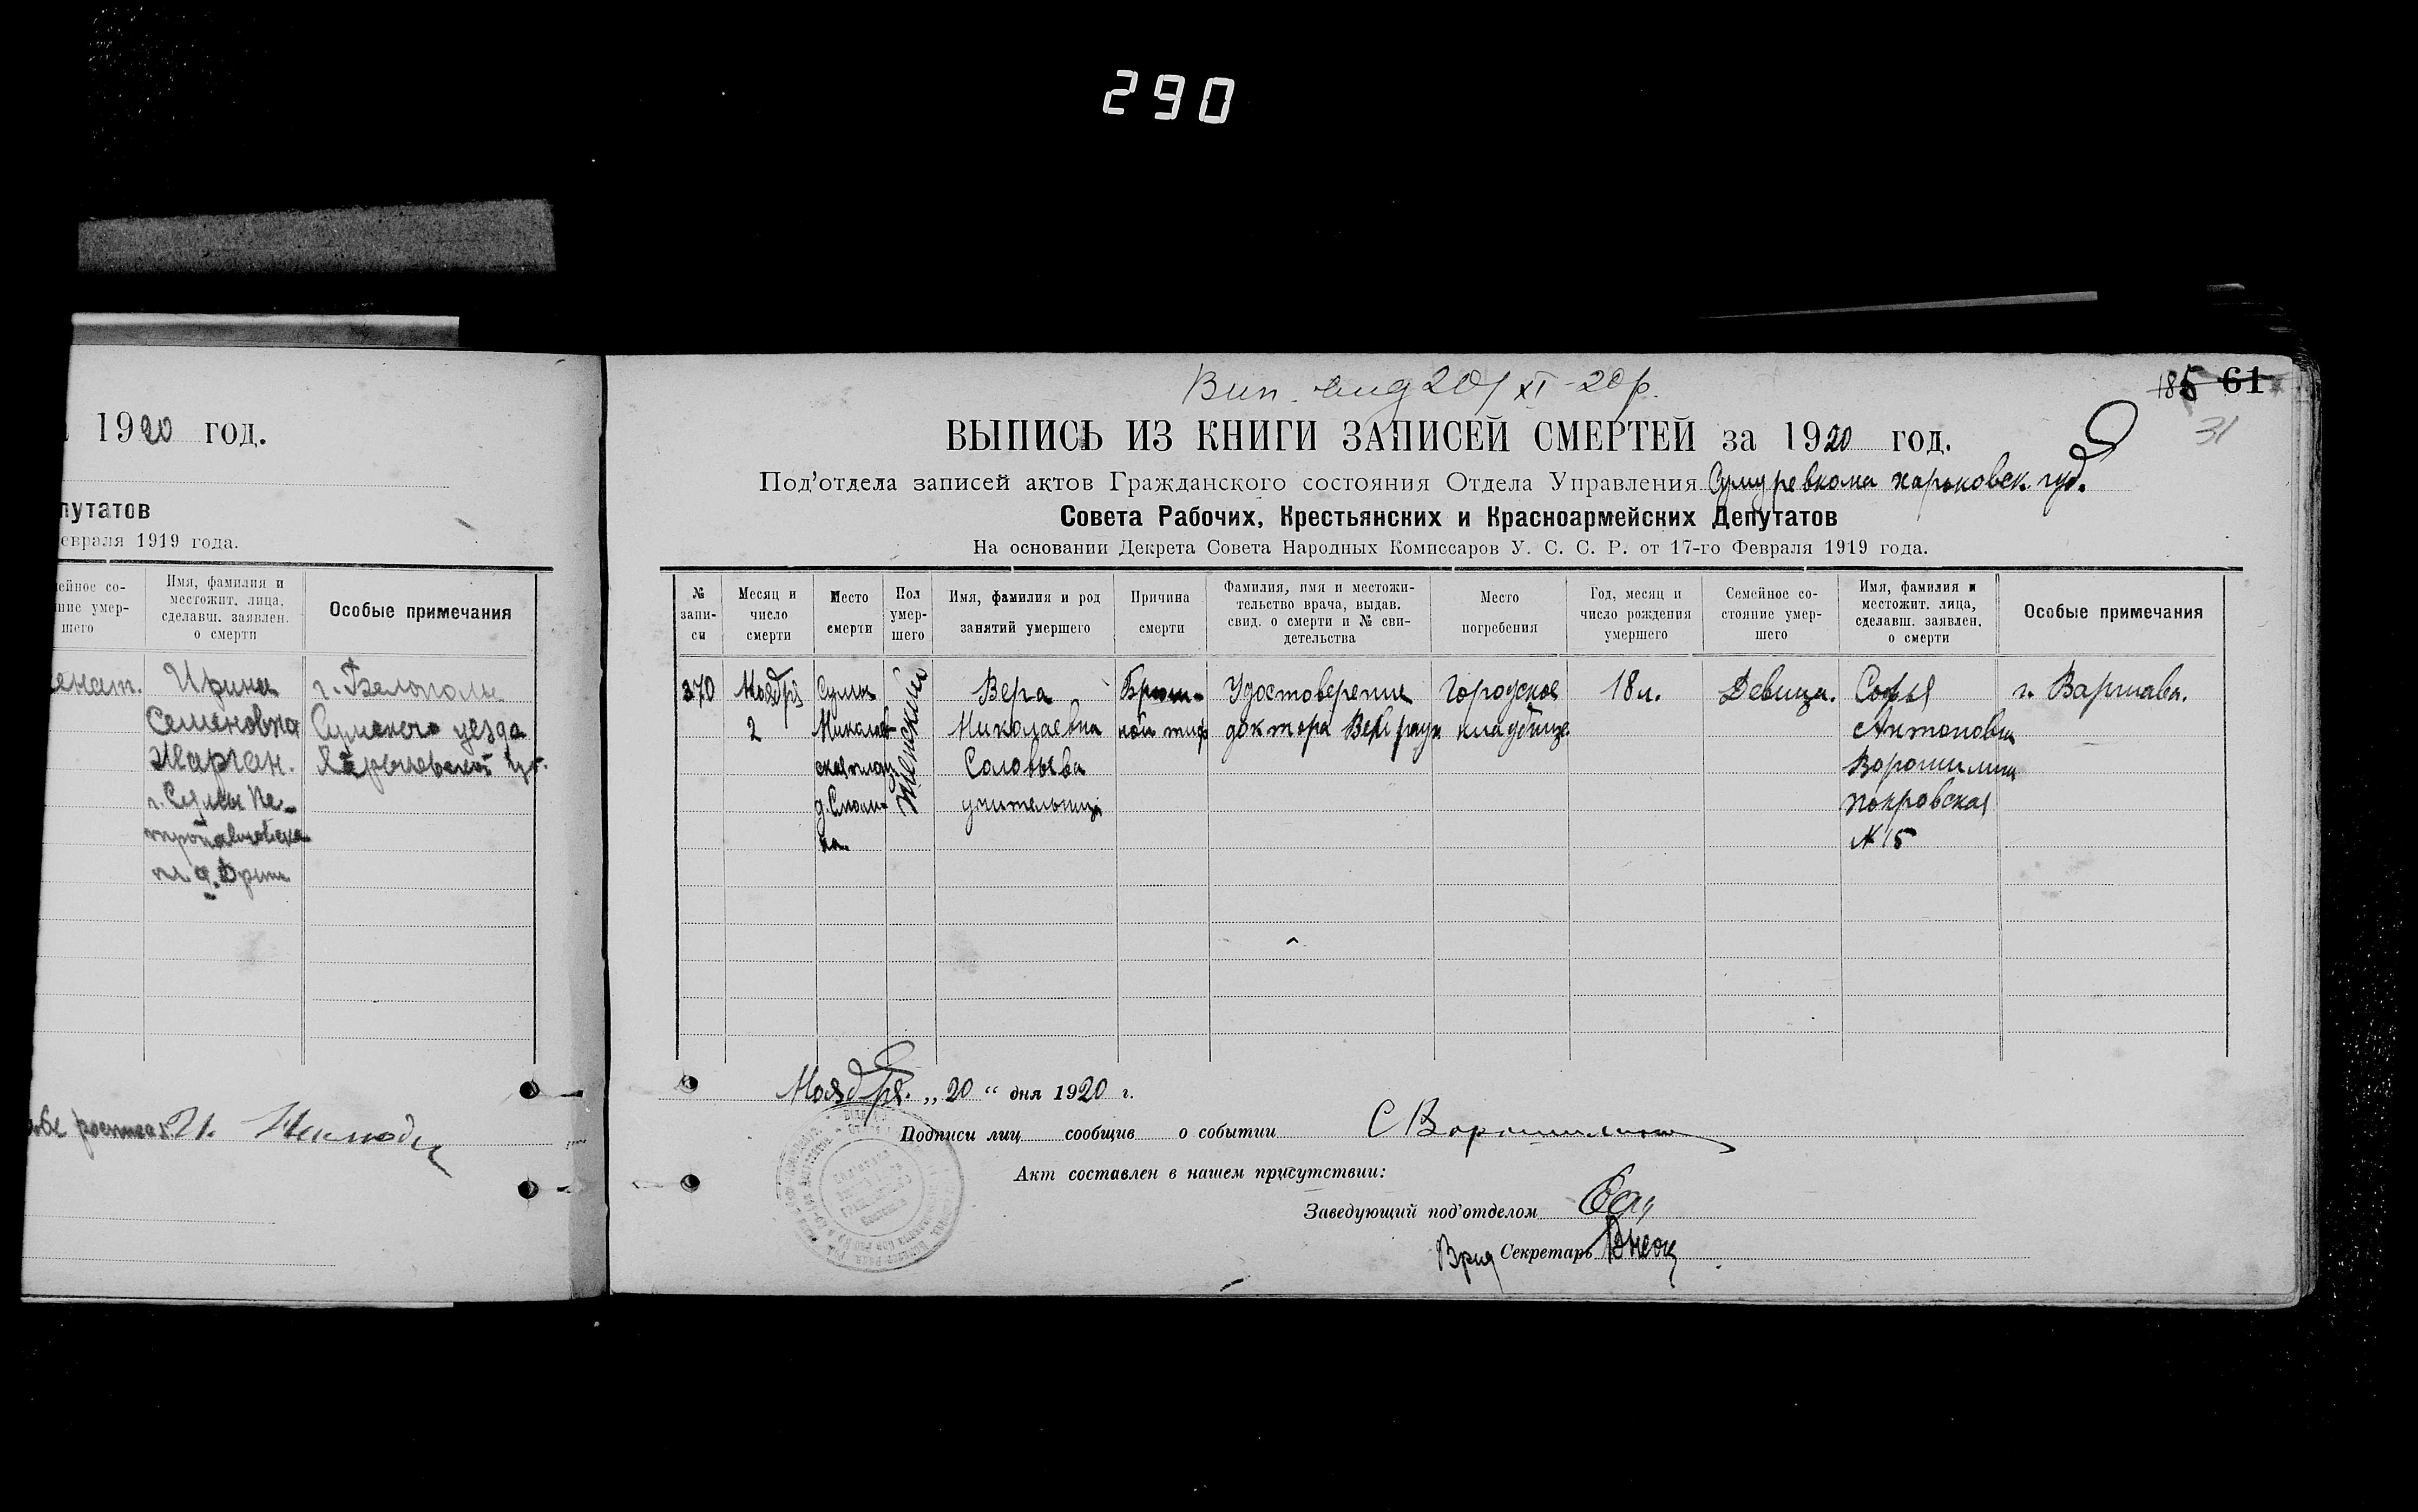 290
1920 год.
путатов
евраля 1919 года.
ейное со-
ние умер-
шего
Имя, фамилия и
местожит. лица,
сделавш. заявлен.
о смерти
Особые примечания
Ирина
Семеновна
г. Сумы Пе-
г. Белополье
Сумского уезда
61
31
ВЫПИСЬ ИЗ КНИГИ ЗАПИСЕЙ СМЕРТЕЙ за 1920 год.
Под'отдела записей актов Гражданского состояния Отдела Управления Сумуревкома харьковск. губ.
Совета Рабочих, Крестьянских и Красноармейских Депутатов
На основании Декрета Совета Народных Комиссаров У. С. С. Р. от 17-го Февраля 1919 года.
№
запи-
си
Месяц и
число
смерти
Место
смерти
Пол
умер-
шего
Имя, фамилия и род
занятий умершего
Причина
смерти
Фамилия, имя и местожи-
тельство врача, выдав.
свид. о смерти и № сви-
детельства
Место
погребения
Год, месяц и
число рождения
умершего
Семейное со-
стояние умер-
шего
Имя, фамилия и
местожит. лица,
сделавш. заявлен.
о смерти
Особые примечания
370
Ноября
2
Сумы
Николаев-
ская
женский
Вера
Николаевна
Соловьева
учительница
Брюш-
ной тиф
Удостоверение
доктора
Городское
кладбище
18 л.
Девица.
Софья
Антоновна
Ворошилина
Покровская
№ 15
г. Варшава.
Ноября. „ 20 “ дня 1920 г.
Подписи лиц сообщив о событии С Ворошилина
Акт составлен в нашем присутствии:
Заведующий под'отделом
Врид Секретарь